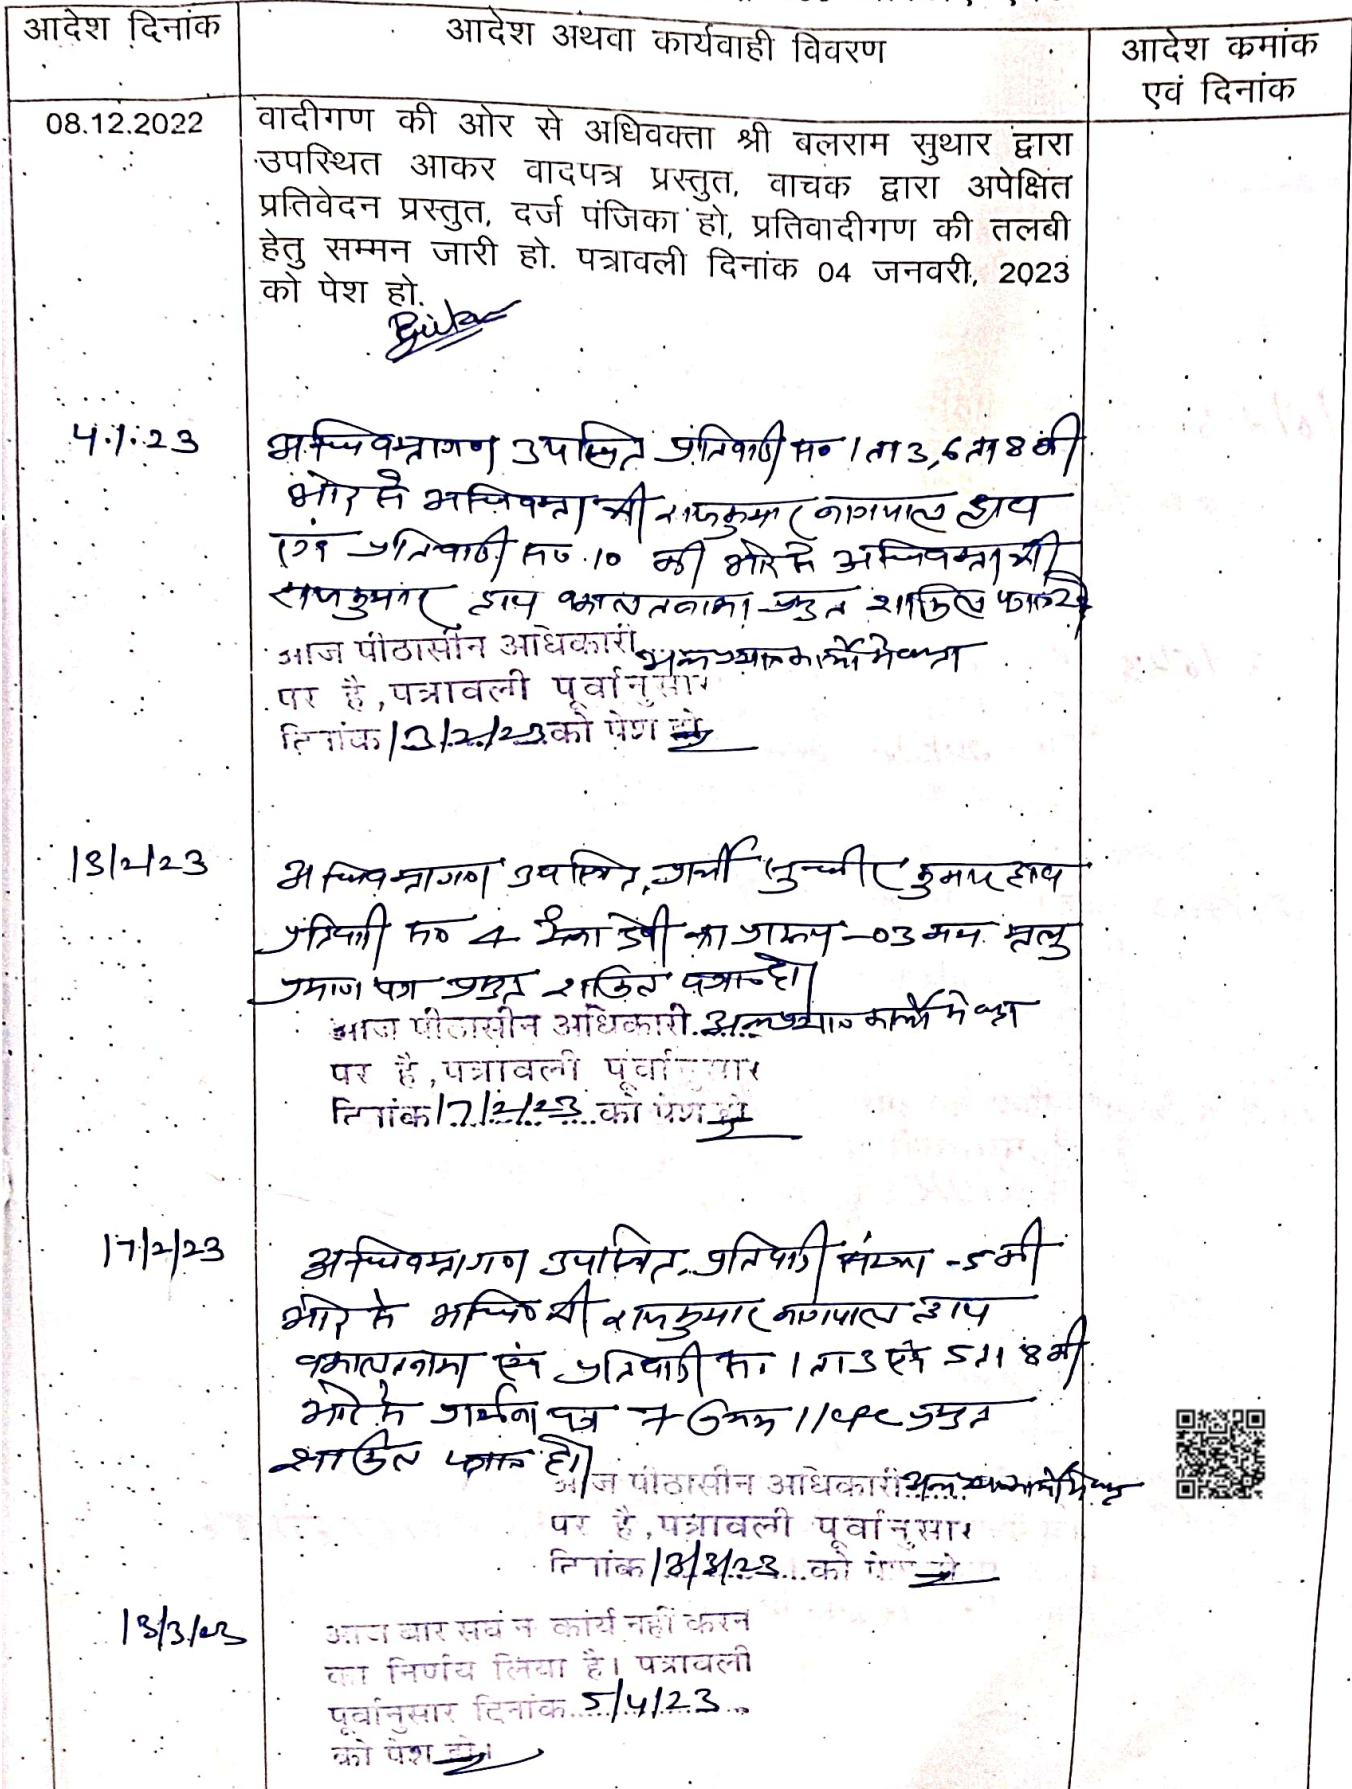 आदेश दिनांक
आदेश अथवा कार्यवाही विवरण
आदेश कमांक
एवं दिनांक
08.12.2022
वादीगण की ओर से अधिवक्ता श्री बलराम सुथार द्वारा
उपस्थित आकर वादपत्र प्रस्तुत, वाचक द्वारा अपेक्षित
प्रतिवेदन प्रस्तुत, दर्ज पंजिका हो, प्रतिवादीगण की तलबी
हेतु सम्मन जारी हो. पत्रावली दिनांक 04 जनवरी, 2023
को पेश हो.
4.1.23
अधिवक्तागण उपस्थित प्रतिवादी स० 1 ता 3, 6 ता 8 की
ओर से अधिवक्ता श्री राजकुमार नागपाल द्वारा
एवं प्रतिवादी स० 10 की ओर से अधिवक्ता श्री
राजकुमार द्वारा वकालतनामा प्रस्तुत शामिल
आज पीठासीन अधिकारी अन्य राजकार्य में व्यस्त
पर है, पत्रावली पूर्वानुसार
दिनांक 13/2/23 को पेश हो
13/2/23
अधिवक्तागण उपस्थित, प्रार्थी सुधीर कुमार द्वारा
प्रतिवादी स० 4 देवी का प्रारूप-03 मय मृत्यु
प्रमाण पत्र प्रस्तुत शामिल पत्रा० हो।
आज पीठासीन अधिकारी अन्य राजकार्य में व्यस्त
पर है, पत्रावली पूर्वानुसार
दिनांक 17/2/23 को पेश हो
17/2/23
अधिवक्तागण उपस्थित, प्रतिवादी संख्या -5 की
ओर से अधि० श्री राजकुमार नागपाल द्वारा
वकालतनामा एवं प्रतिवादी स. 1 ता 3 एवं 5 ता 8 की
ओर से प्रार्थना पत्र 7 नियम 11 CPC प्रस्तुत
शामिल पत्रा० हो।
आज पीठासीन अधिकारी अन्य राजकार्य में व्यस्त
पर है, पत्रावली पूर्वानुसार
दिनांक 13/3/23 को पेश हो
13/3/23
आज बार संघ ने कार्य नहीं करने
का निर्णय लिया है। पत्रावली
पूर्वानुसार दिनांक 5/4/23
को पेश हो।